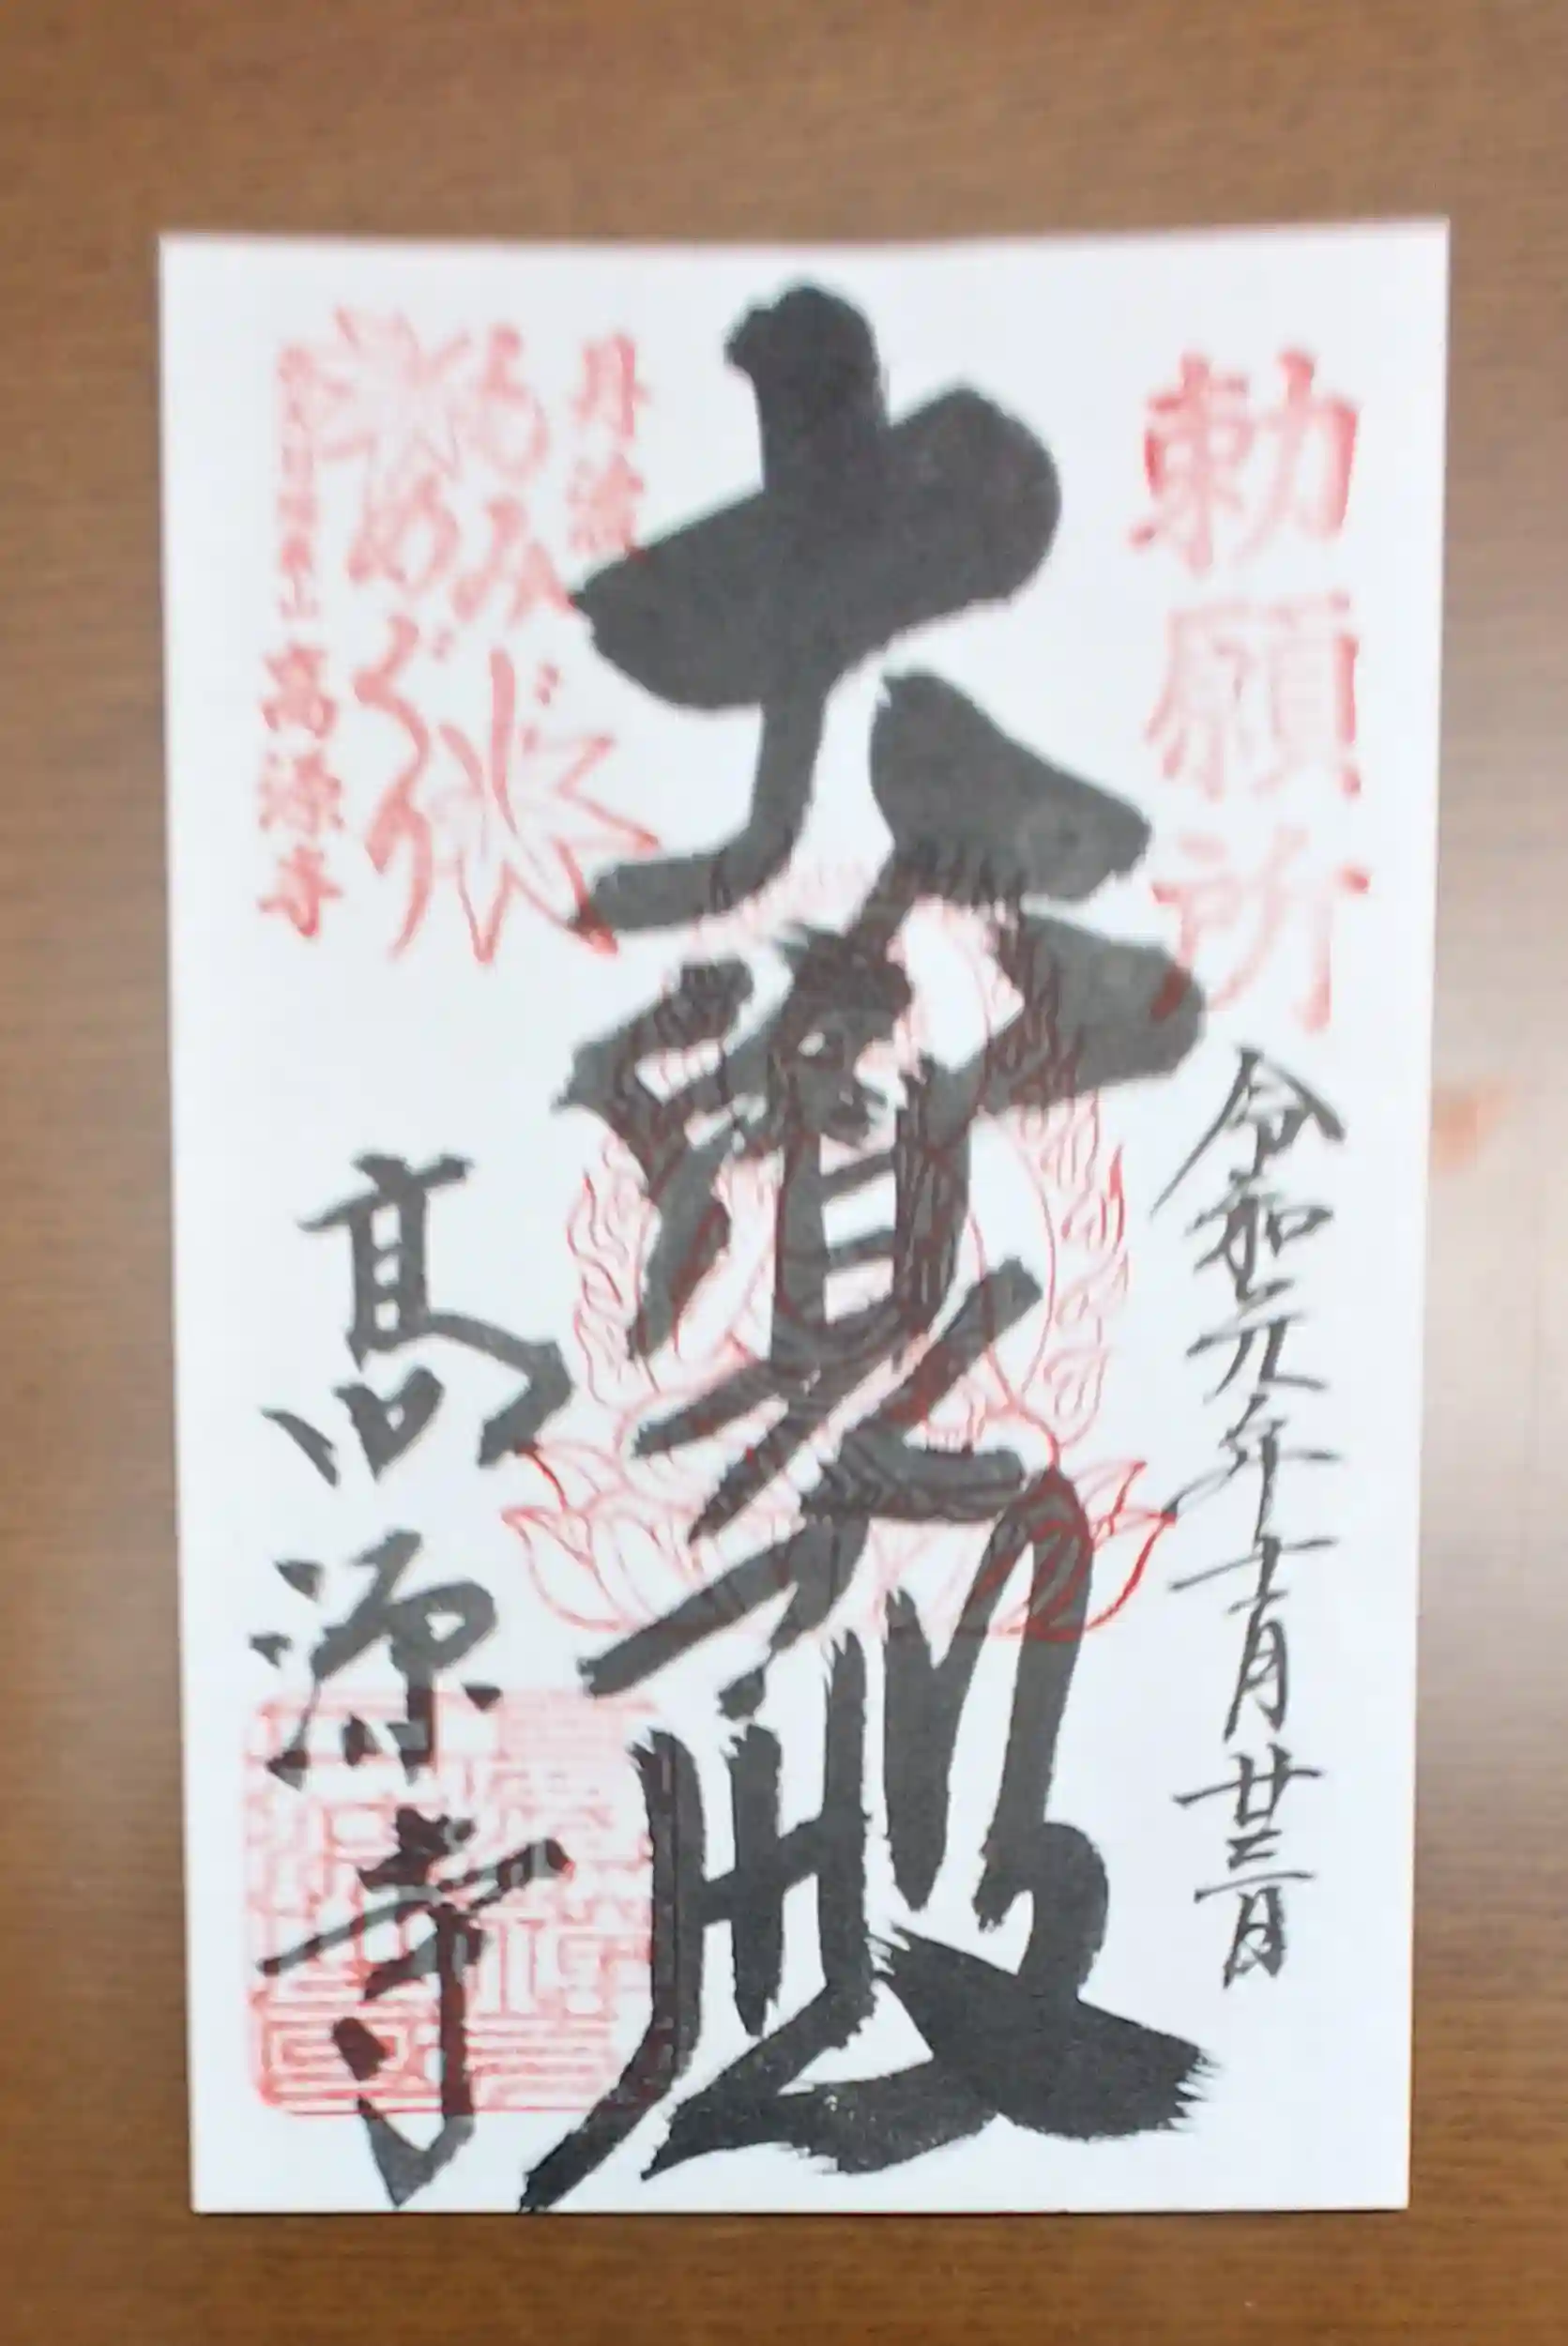 勅願所
令和元年十一月廿三日
大寶殿
丹波
もみじ
めぐり
高源寺
高源寺